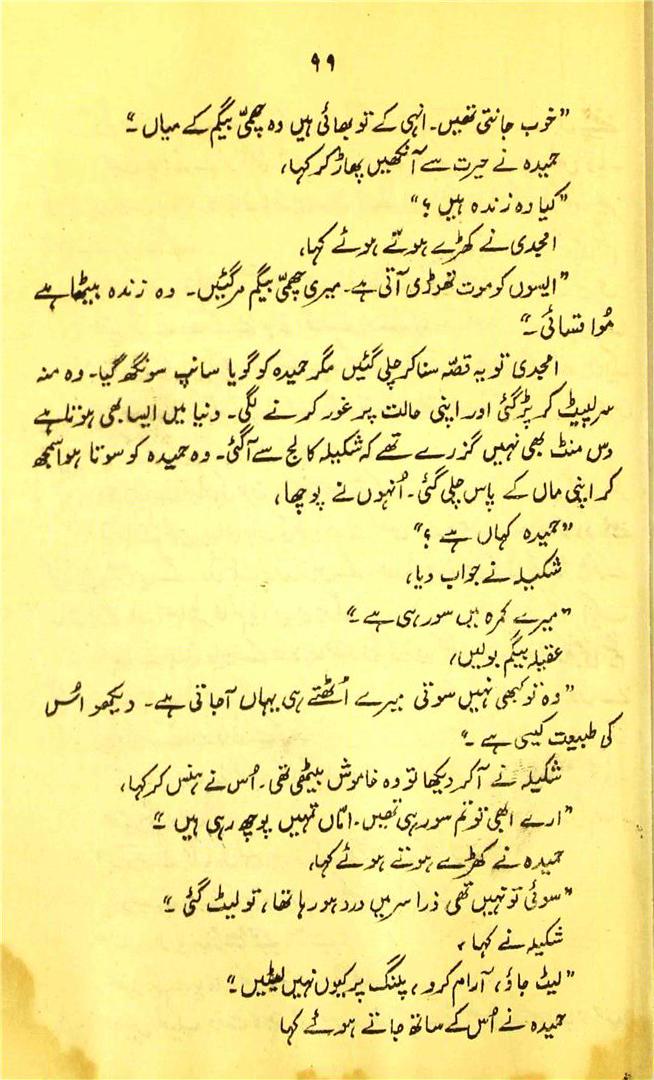 ۹۹
"خوب جانتی تھیں۔ انہی کے تو بھائی ہیں وہ چھمّی بیگم کے میاں۔"
حمیدہ نے حیرت سے آنکھیں پھاڑ کر کہا،
"کیا وہ زندہ ہیں؟"
امجدی نے کھڑے ہوتے ہوئے کہا،
"ایسوں کو موت تھوڑی آتی ہے۔ میری چھمّی بیگم مر گئیں۔ وہ زندہ بیٹھا ہے
مُوا قسائی۔"
امجدی تو یہ قصّہ سنا کر چلی گئیں مگر حمیدہ کو گویا سانپ سونگھ گیا۔ وہ منہ
سر لپیٹ کر پڑ گئی اور اپنی حالت پر غور کرنے لگی۔ دنیا میں ایسا بھی ہوتا ہے
دس منٹ بھی نہیں گزرے تھے کہ شکیلہ کالج سے آ گئی۔ وہ حمیدہ کو سوتا ہوا سمجھ
کر اپنی ماں کے پاس چلی گئی۔ اُنہوں نے پوچھا،
"حمیدہ کہاں ہے؟"
شکیلہ نے جواب دیا،
"میرے کمرہ میں سو رہی ہے۔"
عقیلہ بیگم بولیں،
"وہ تو کبھی نہیں سوتی میرے اُٹھتے ہی یہاں آ جاتی ہے۔ دیکھو اُس
کی طبیعت کیسی ہے۔"
شکیلہ نے آ کر دیکھا تو وہ خاموش بیٹھی تھی۔ اُس نے ہنس کر کہا،
"ارے ابھی تو تم سو رہی تھیں۔ امّاں تمہیں پوچھ رہی ہیں۔"
حمیدہ نے کھڑے ہوتے ہوئے کہا،
"سوئی تو نہیں تھی ذرا سر میں درد ہو رہا تھا، تو لیٹ گئی۔"
شکیلہ نے کہا،
"لیٹ جاؤ، آرام کرو، پلنگ پر کیوں نہیں لیٹیں۔"
حمیدہ نے اُس کے ساتھ جاتے ہوئے کہا